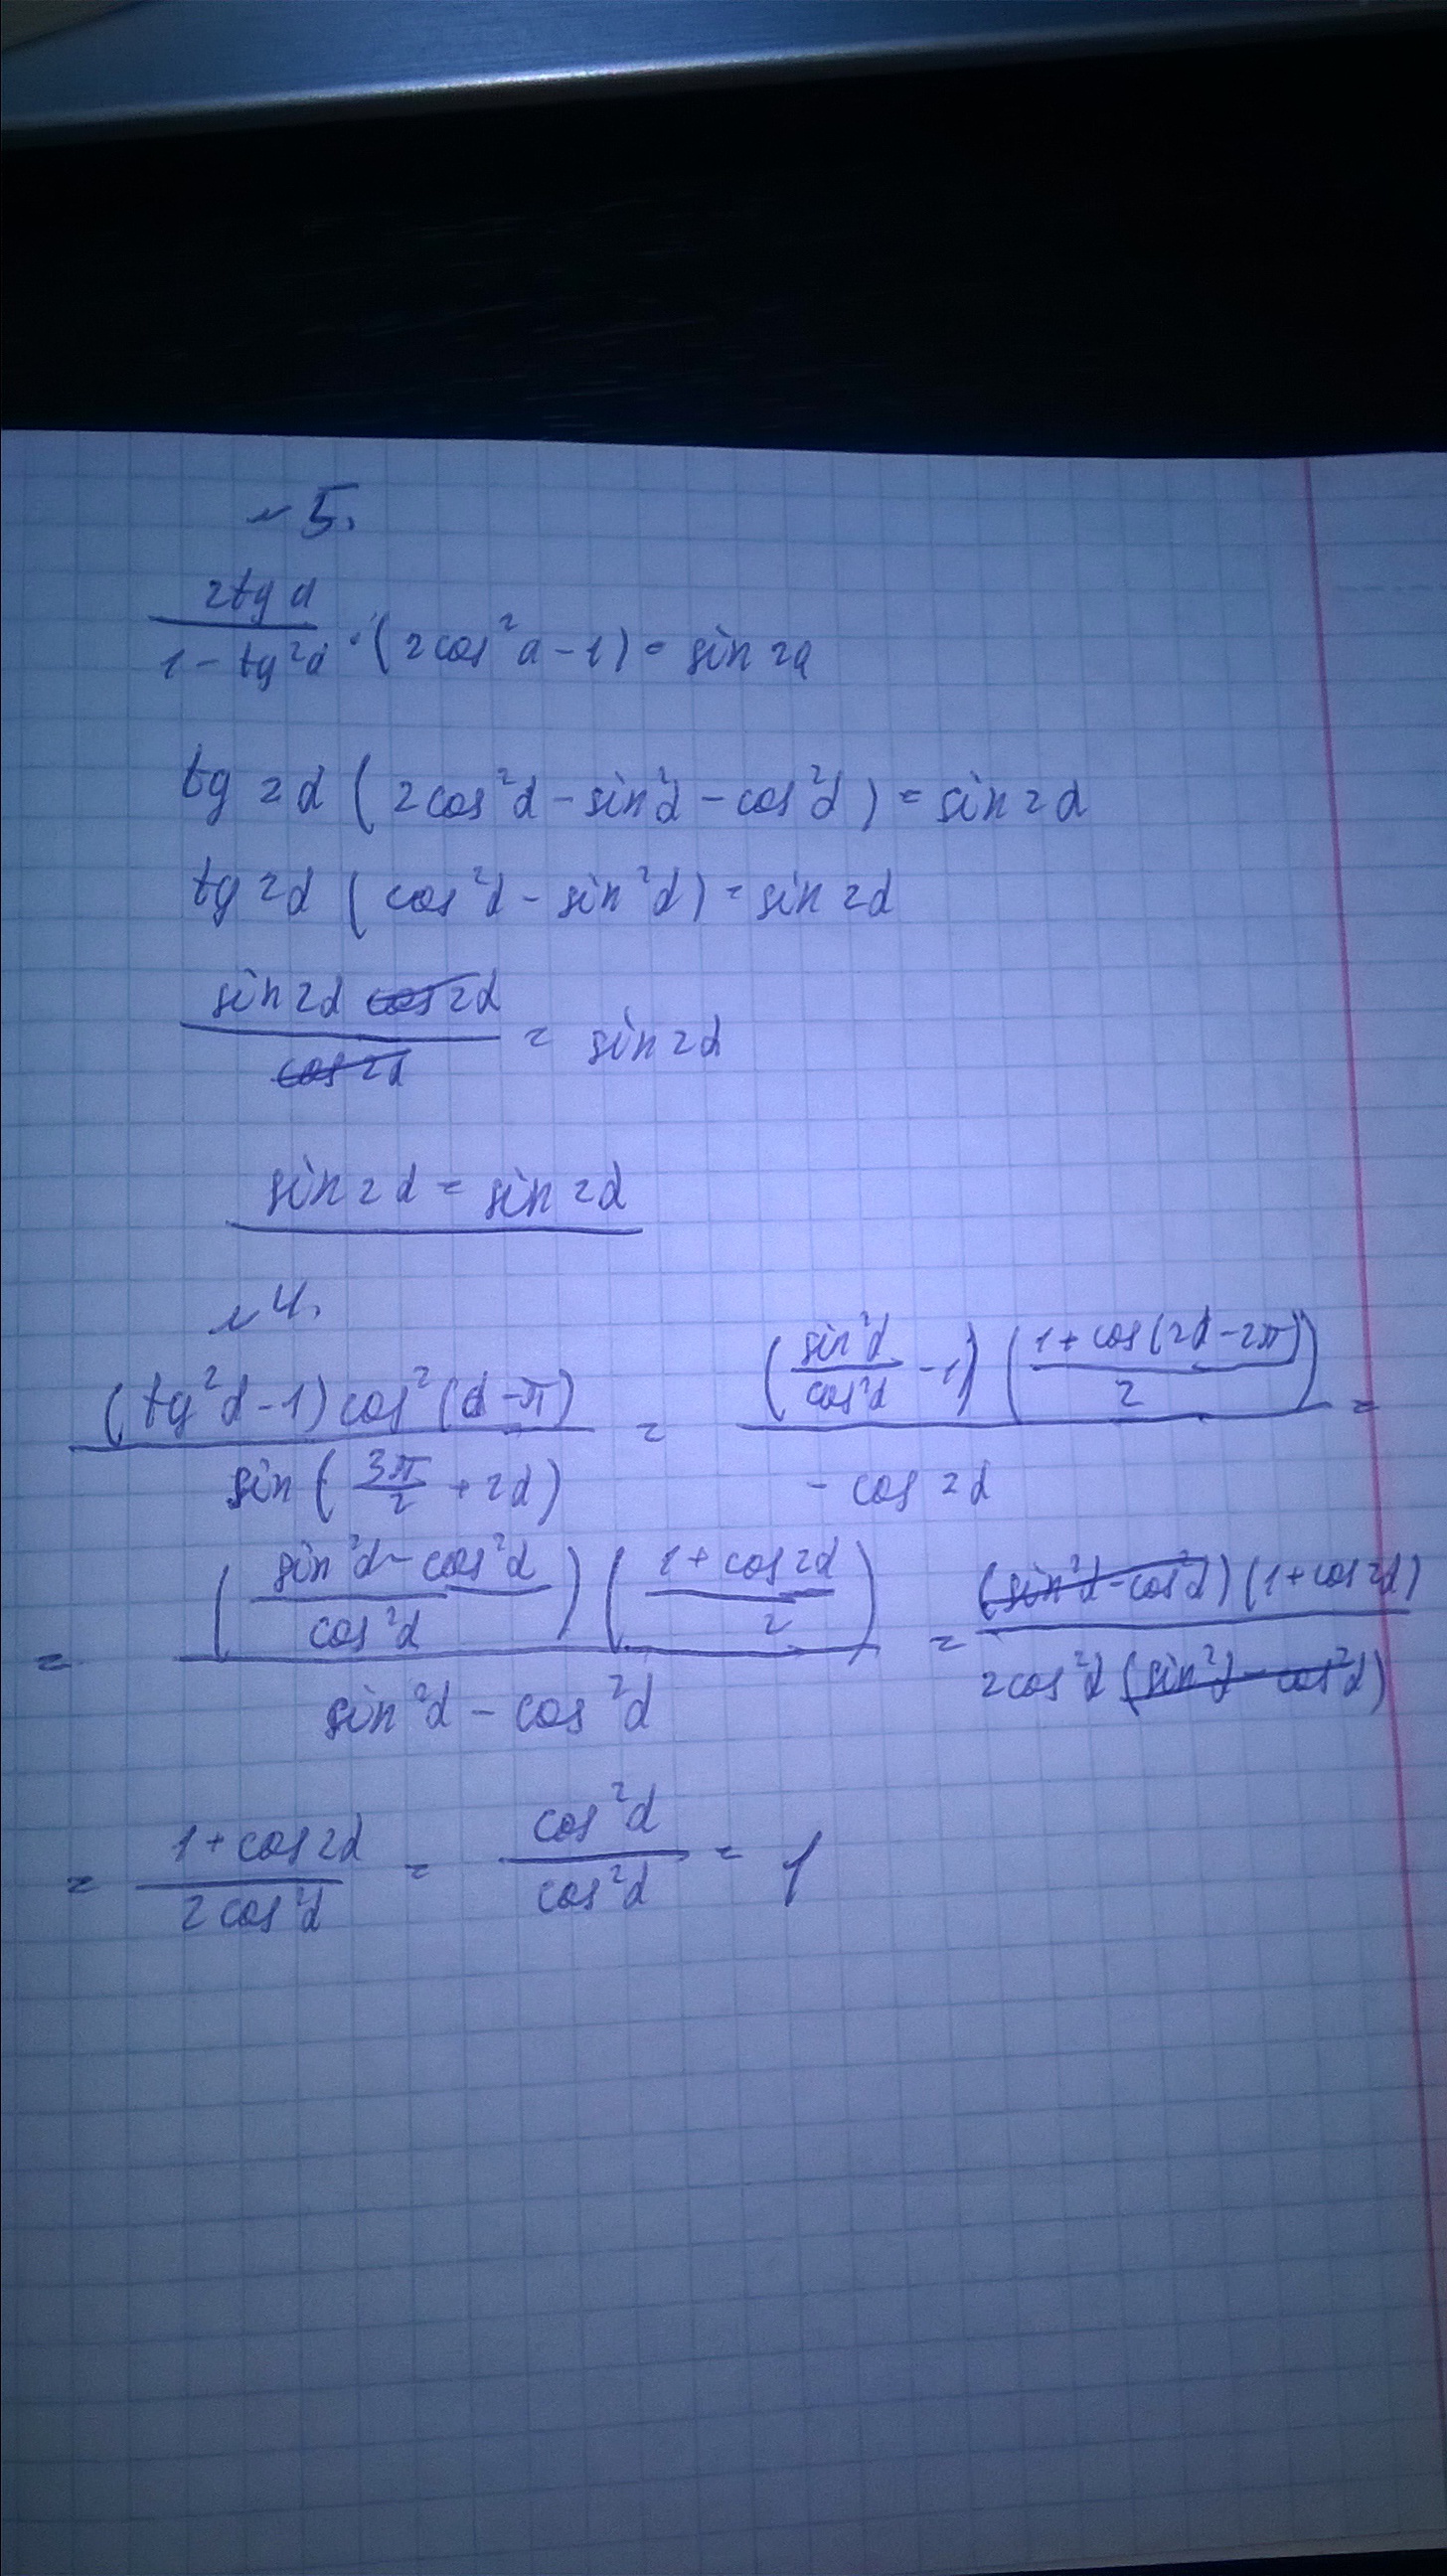 №5.
2tg α / 1 - tg²α · (2cos²α - 1) = sin 2α
tg 2α (2cos²α - sin²α - cos²α) = sin 2α
tg 2α (cos²α - sin²α) = sin 2α
sin 2α cos 2α / cos 2α = sin 2α
sin 2α = sin 2α
№4.
(tg²α - 1) cos²(α - π) / sin(3π/2 + 2α) = (sin²α/cos²α - 1)(1 + cos(2α - 2π)/2) / - cos 2α =
= (sin²α - cos²α / cos²α)(1 + cos 2α / 2) / sin²α - cos²α = (sin²α - cos²α)(1 + cos 2α) / 2cos²α (sin²α - cos²α)
= 1 + cos 2α / 2 cos²α = cos²α / cos²α = 1